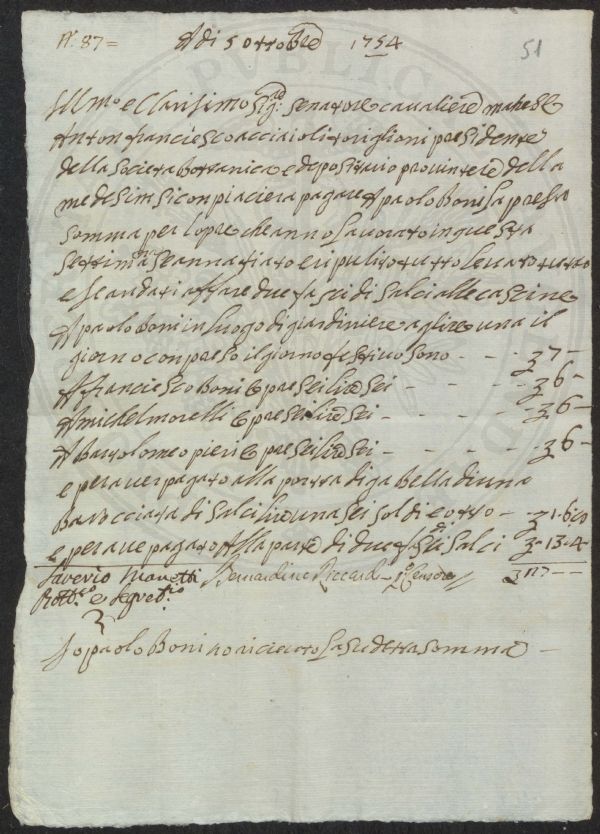 Nº. 87= Adi 5 ottobre 1754 51
Ill.mo e Clarisimo Sig.re Senatore cavaliere mahese
Anton franciesco acciaioli toriglioni presidente
della Societa bottanica e depositario provintere della
medesim si conpiacera pagare A paolo Boni la presēt
somma per l'opre che anno Lavorato in questa
settimana se anna fiato e ripulito tutto levato tutto
e se andati affare due fasci di Salci alle cascine
A paolo Boni in luogo di giardiniere a glire una il
giorno conpreso il giorno festivo sono - - - 7 -
A francie sco Boni opre sei lire sei - - - - 6 -
A michel morelli opre sei lire sei - - - - 6 -
A bartolomeo pieri opre sei lire sei - - - - 6 -
e per aver pagato alla porta di gabella di una
barocciata di Salci lire una sei soldi e otto - 1.6.8
e per ave pagato Alla parte di due fasci Salci -.13.4-
Saverio Manetti Bernardino Riccardi Pº. Censore 27 - -
Prott.ro e Segret.rio
Io paolo Boni ho riceuto la sudetta somma -